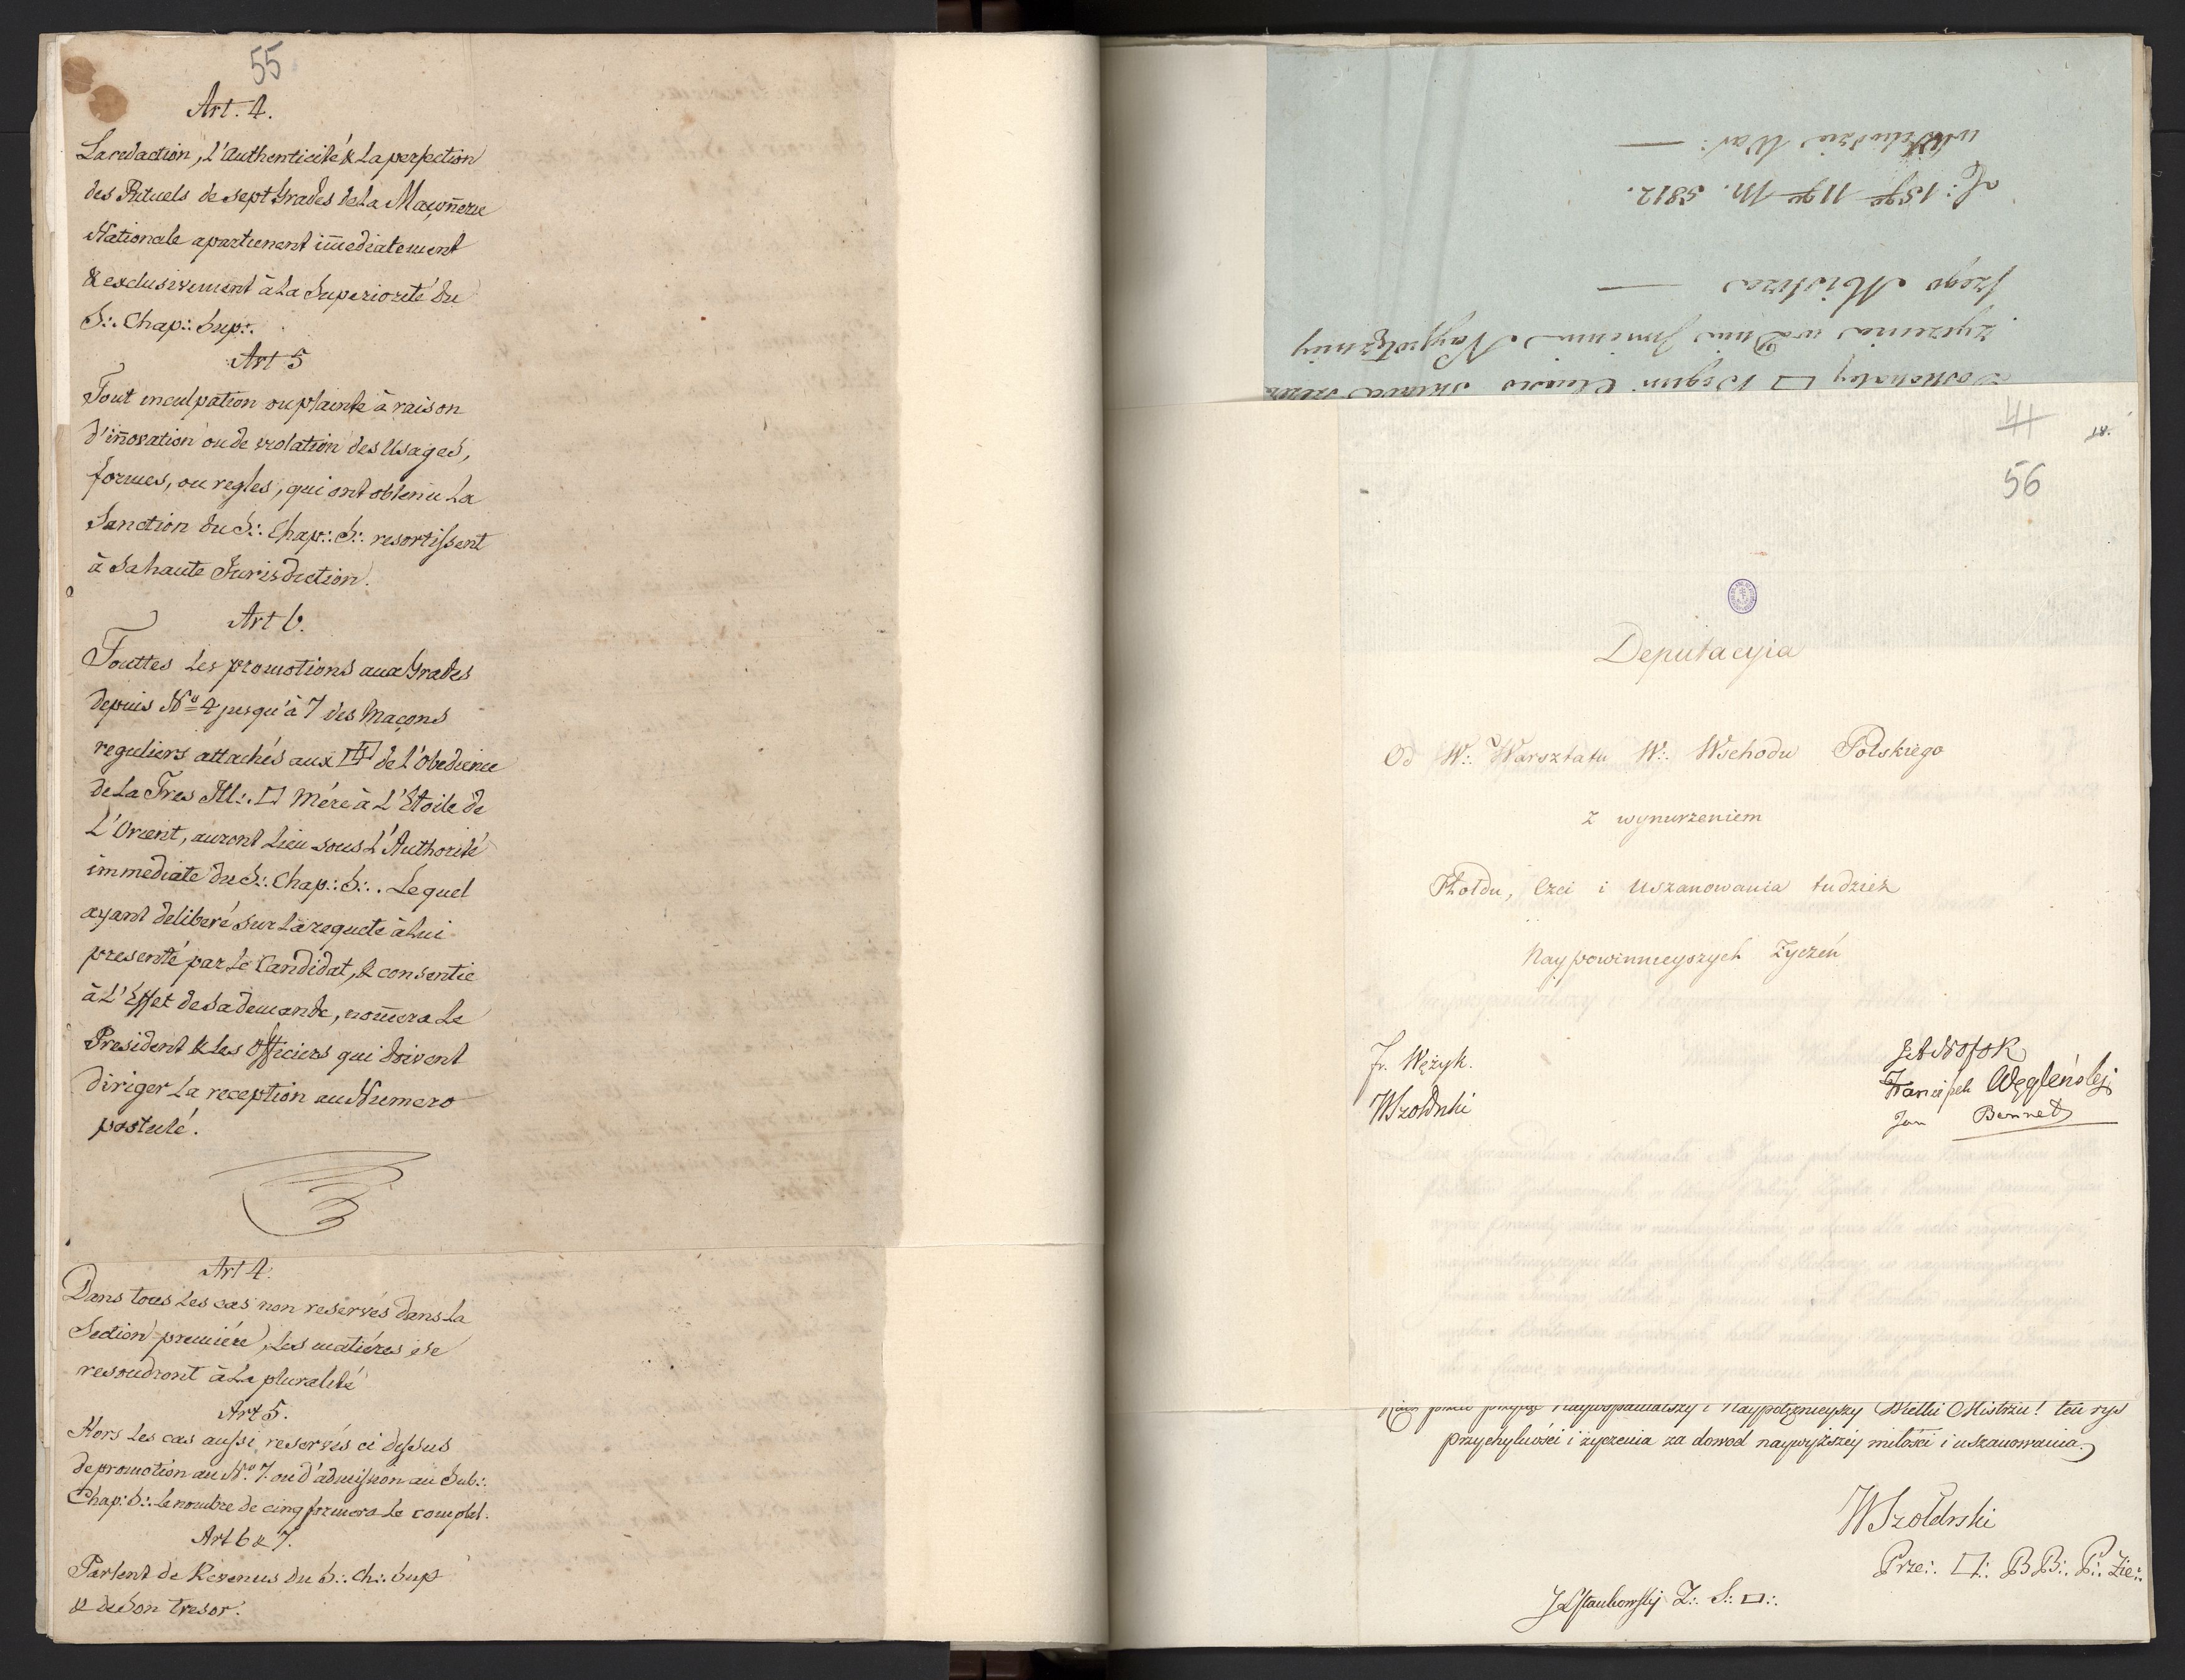 55
Art. 4.
La redaction, l'Authenticité & La perfection
des Rituels de sept Grades de La Maçoñerie
Nationale apartienent im̃ediatement
& exclusivement à La Superiorité du
S:. Chap:. Sup:.
Art 5
Tout inculpation ou plainte à raison
d'iñovation ou de violation des Usages,
formes, ou regles, qui ont obtenu La
Sanction du S:. Chap:. S:. resortissent
à Sa haute Jurisdiction.
Art 6.
Touttes Les promotions aux Grades
depuis No 4 jusqu'à 7 des Maçons
reguliers attachés aux de l'Obedience
de La Tres Ill:. □ Mére à L'Etoile de
L'Orient, auront Lieu sous L'Authorité
immediate du S:. Chap:. S:. Lequel
ayant deliberé sur La requete à Lui
presenté par Le Candidat, & consentie
à L'Effet de Sa demande, nom̃era Le
President & Les Officiers qui doivent
diriger La reception au Numero
postulé.
Art 4.
Dans tous Les cas non reservés dans La
Section première, Les matiéres se
resoudront à La pluralité
Art 5.
Hors Les cas aussi reservés ci dessus
de promotion au No. 7. ou d'admission au Sub:.
Chap:. S:. Le nombre de cinq formera Le complet.
Art 6 & 7.
Parlent de Revenus du S:. Ch:. Sup
& de Son tresor.
Doskonałey □ Bogini
życzenia w Dniu Jmienia Naypotężniey
szego Mistrza
D: 15go 11go M. 5812.
Wschodzie War:
41
18.
56
Deputacyia
Od W:. Warsztatu W:. Wschodu Polskiego
z wynurzeniem
Hołdu, Czci i Uszanowania tudzież
Naypowinnieyszych Życzeń
Fr. Wężyk.
WSzołdrski
Franciszek Węgleński
Jan Bennet
Racz przeto przyjąć Naywspanialszy i Naypotężnieyszy Wielki Mistrzu! ten rys
przychylności i życzenia za dowod naywyższey miłości i uszanowania.
WSzołdrski
Prze:. □:. BB:. P:. Zie:.
Z:. S:. □:.